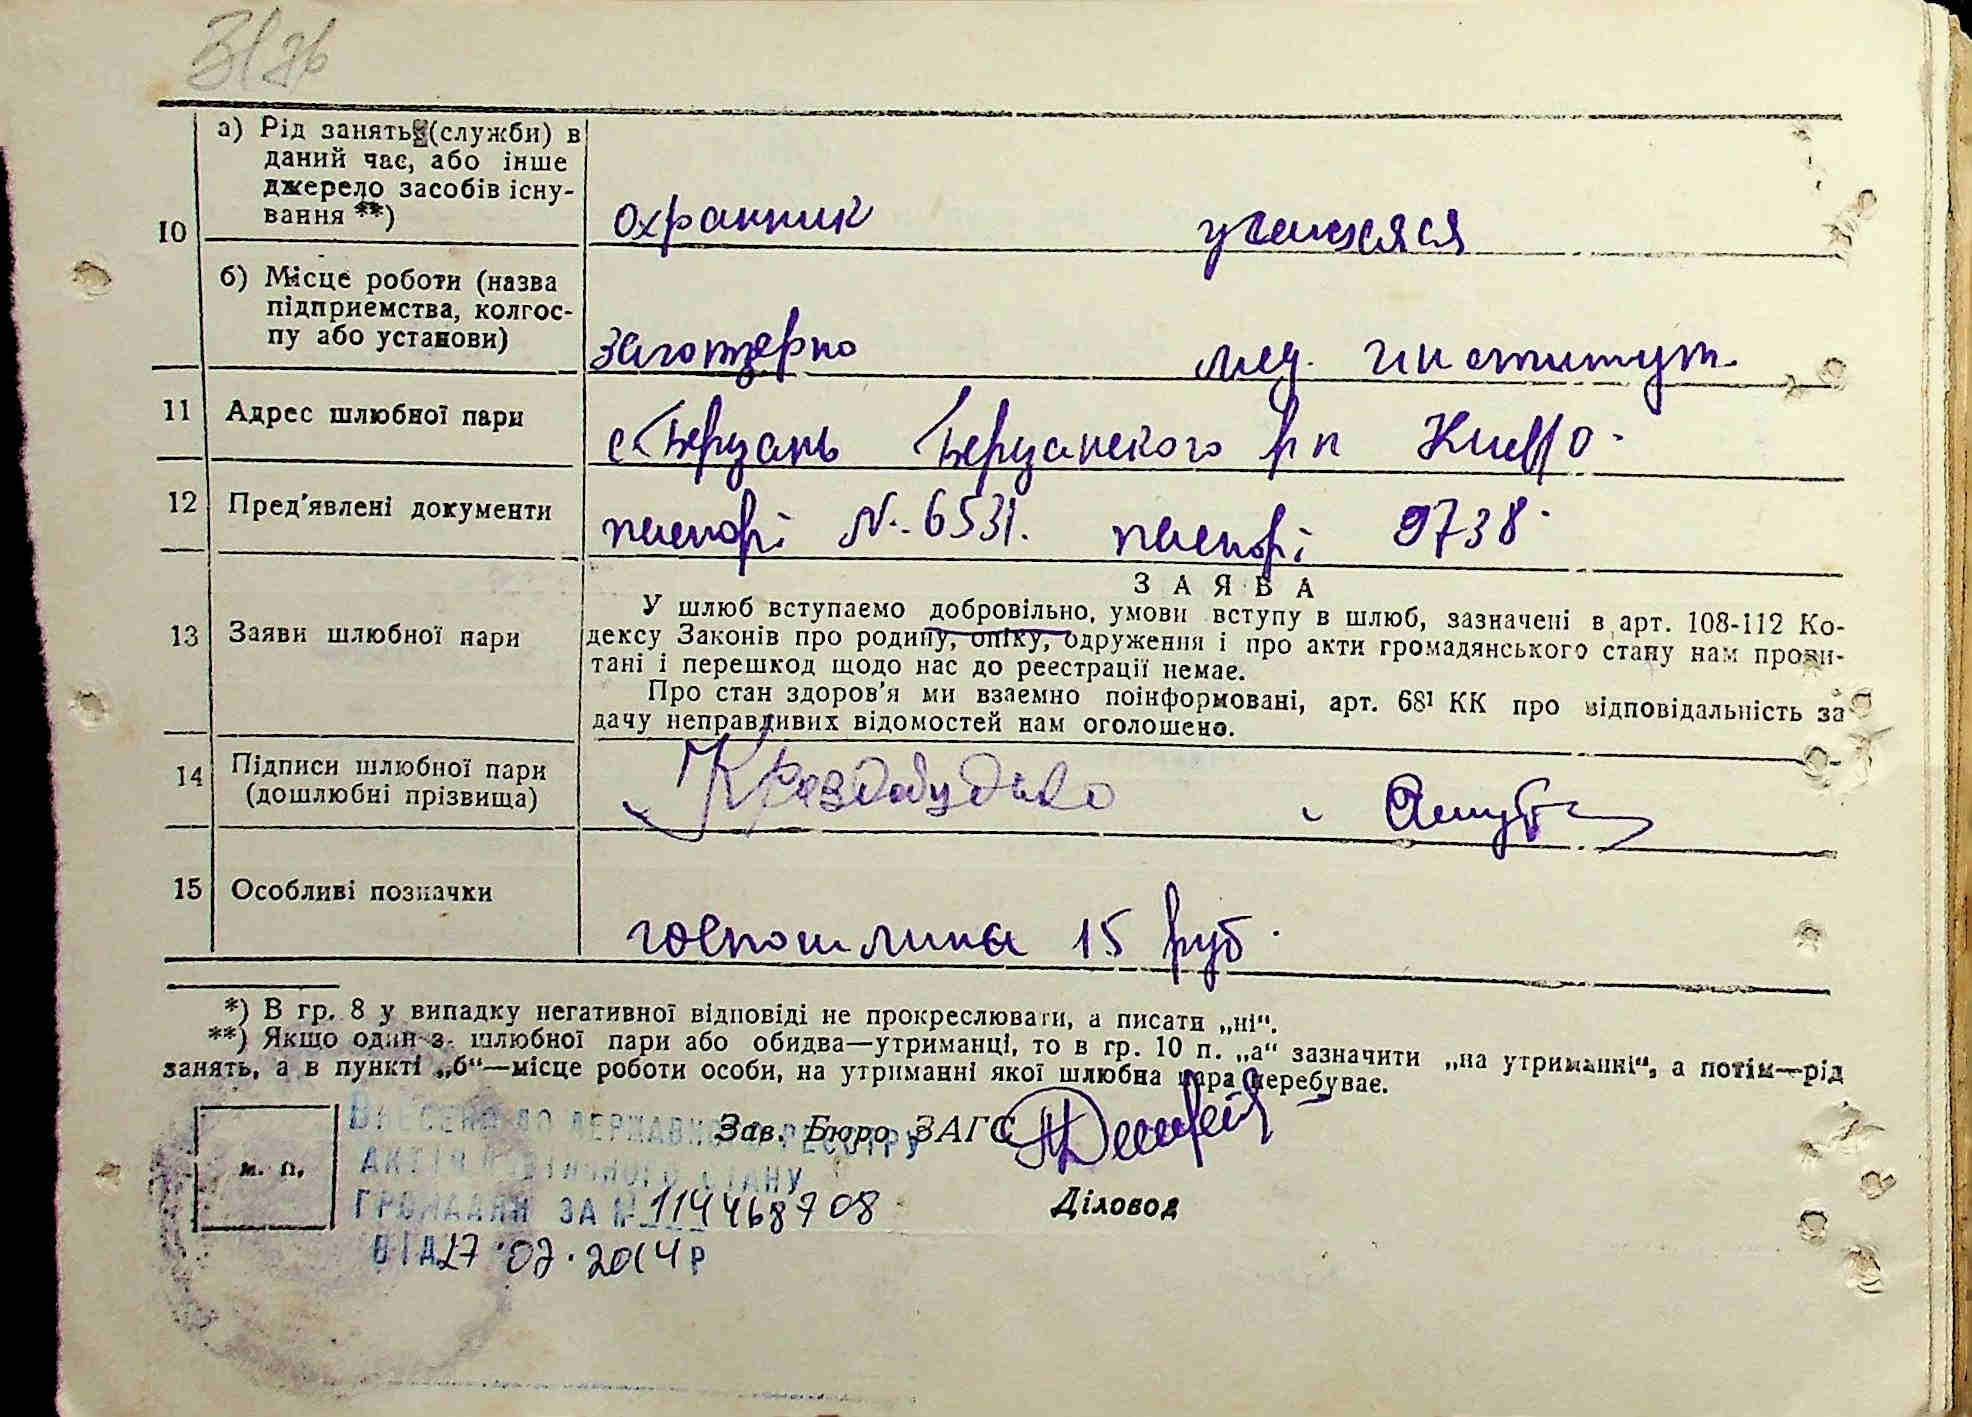 а) Рід занять (служби) в
даний час, або інше
джерело засобів існу-
вання **)
10
охранник учащаяся
б) Місце роботи (назва
підприємства, колгос-
пу або установи)
заготзерно мед. институт
11 Адрес шлюбної пари
с Березань Березанского р н
12 Пред'явлені документи
паспорт №. 6531. паспорт 9738
ЗАЯВА
13 Заяви шлюбної пари
У шлюб вступаємо добровільно, умови вступу в шлюб, зазначені в арт. 108-112 Ко-
дексу Законів про родину, опіку, одруження і про акти громадянського стану нам прочи-
тані і перешкод щодо нас до реєстрації немає.
Про стан здоров'я ми взаємно поінформовані, арт. 68¹ КК про відповідальність за
дачу неправдивих відомостей нам оголошено.
14 Підписи шлюбної пари
(дошлюбні прізвища)
15 Особливі позначки
госпошлина 15 руб.
*) В гр. 8 у випадку негативної відповіді не прокреслювати, а писати „ні“.
**) Якщо один з шлюбної пари або обидва—утриманці, то в гр. 10 п. „а“ зазначити „на утриманні“, а потім—рід
занять, а в пункті „б“—місце роботи особи, на утриманні якої шлюбна пара перебуває.
Зав. Бюро ЗАГС
м. п.
ВНЕСЕНО ДО ДЕРЖАВНОГО РЕЄСТРУ
АКТІВ ЦИВІЛЬНОГО СТАНУ
ГРОМАДЯН ЗА № 114468708
Діловод
ВІД 27.02.2014 р